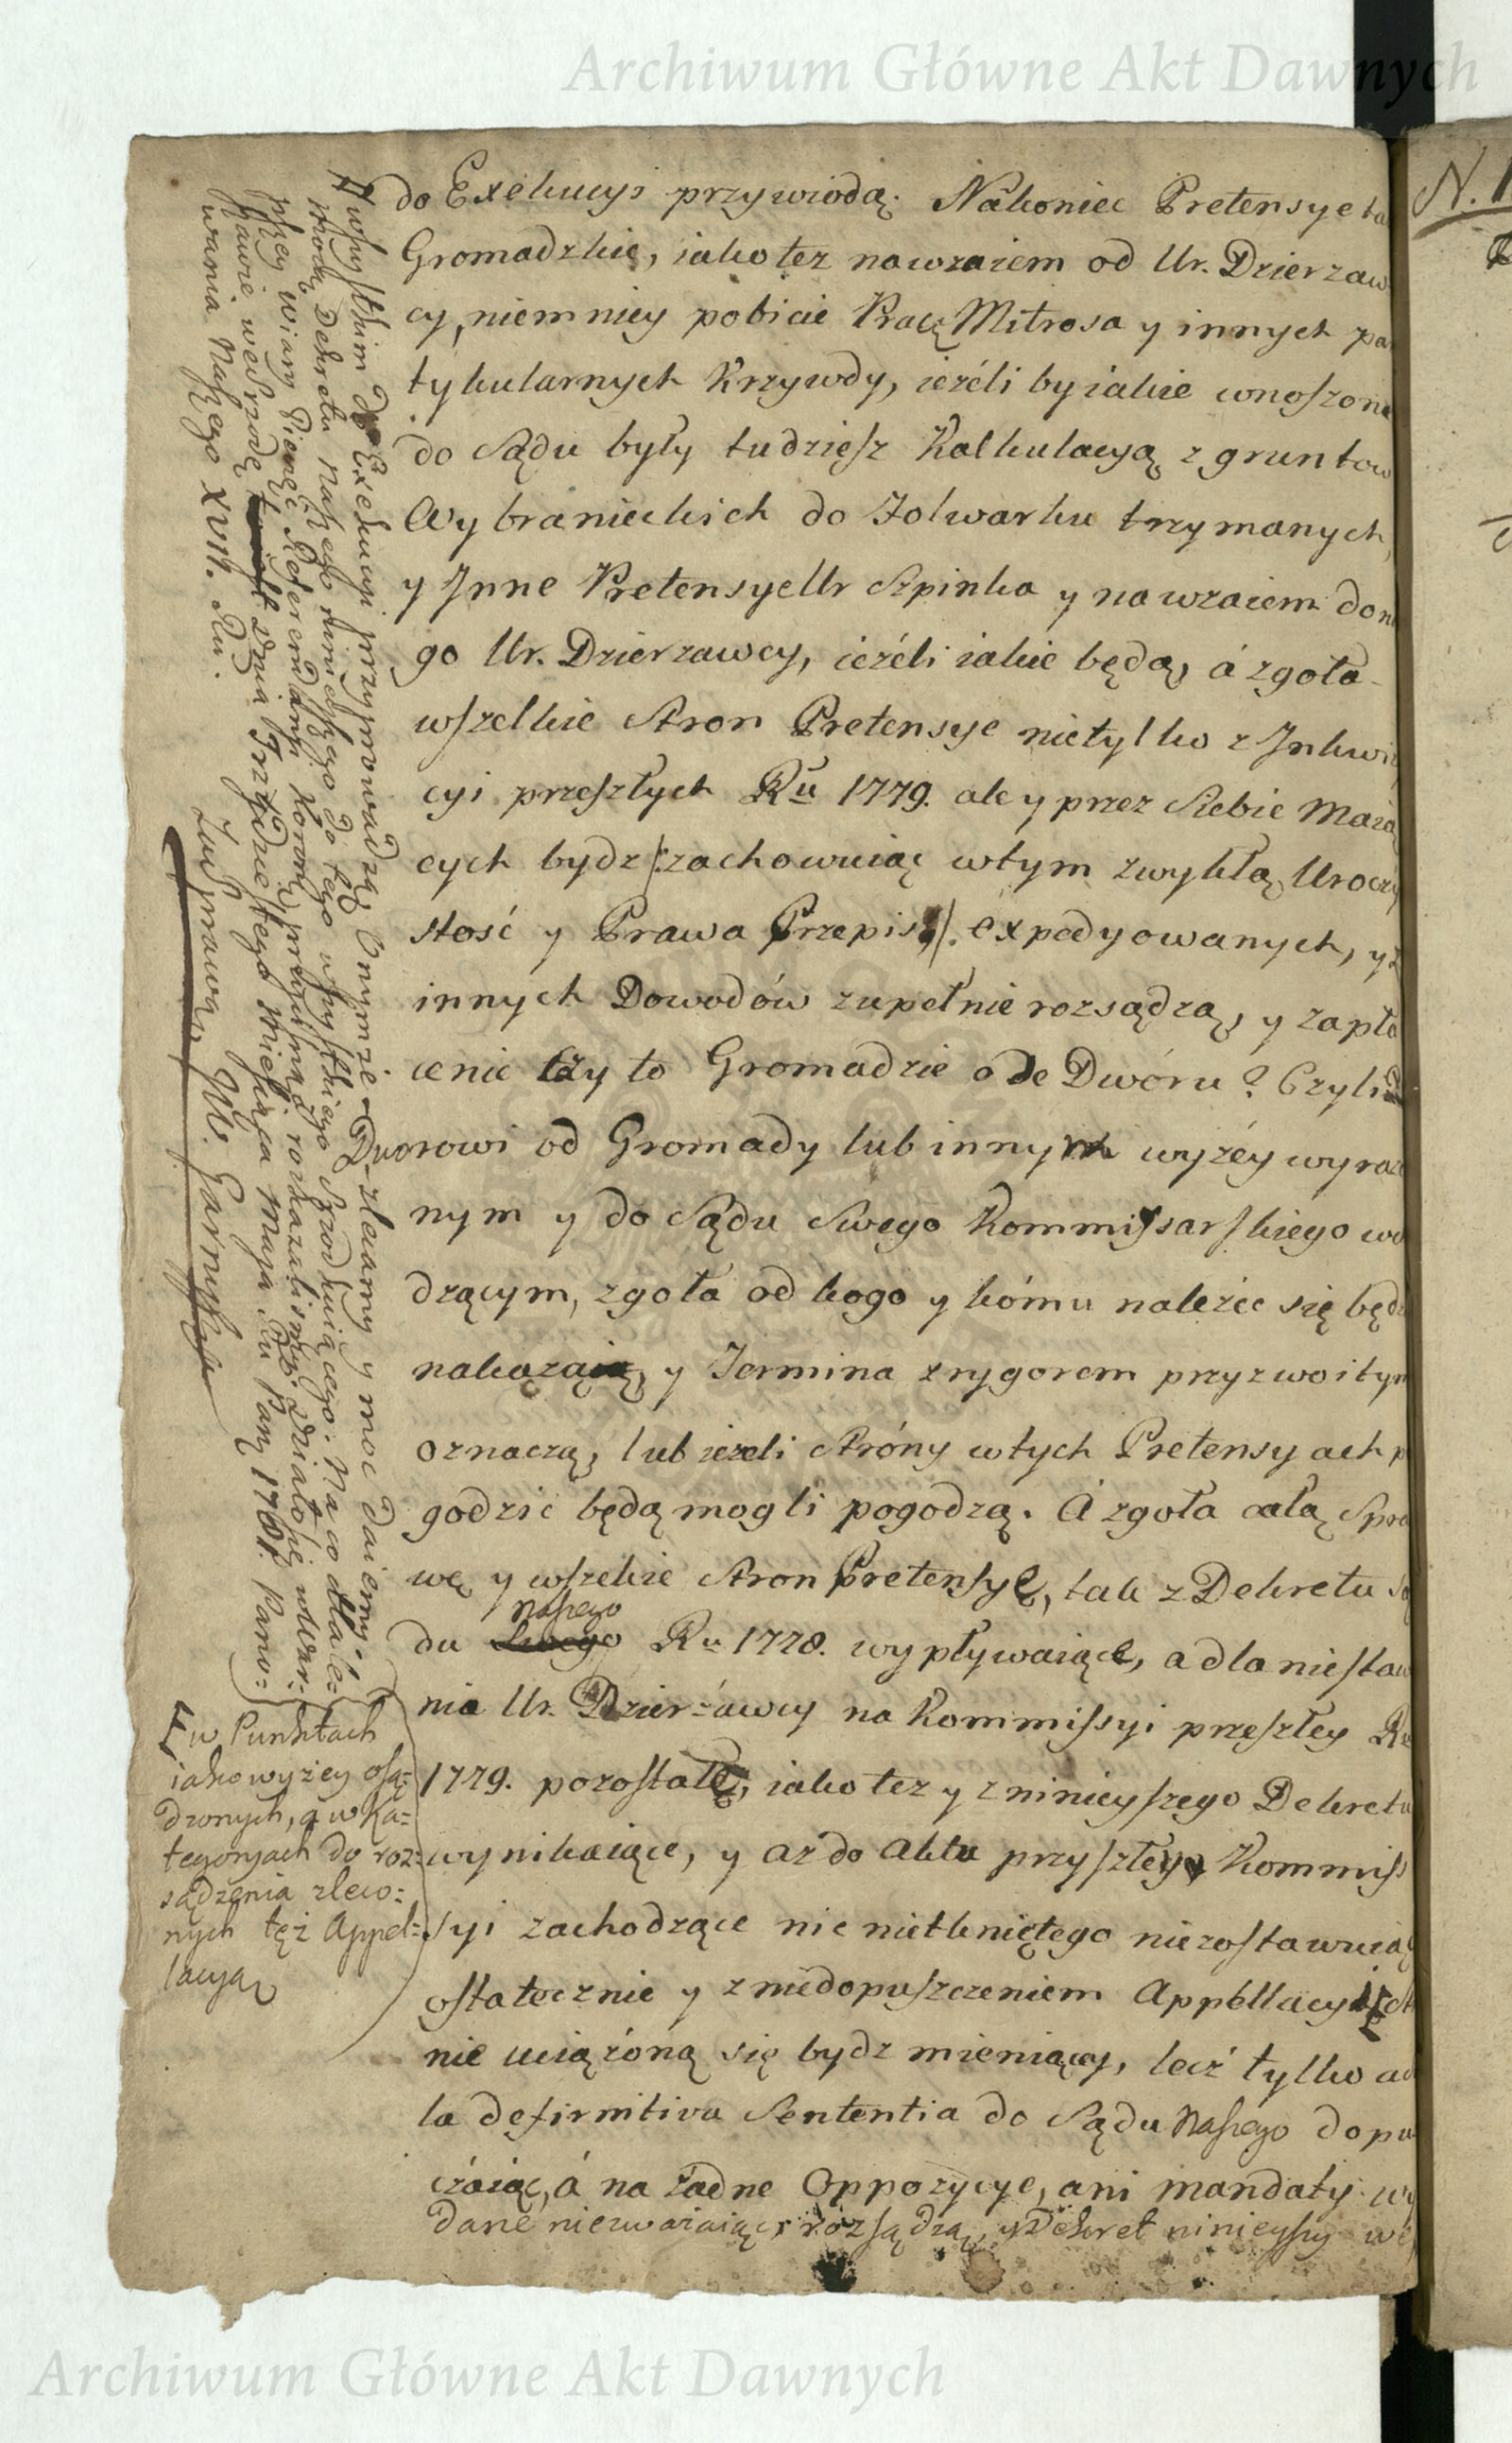 Archiwum Główne Akt Dawnych
do Exekucyi przywiodą. Nakoniec Pretensye ta
Gromadzkie, iako tez nawzaiem od Ur. Dzierzaw
cy, niemniey pobicie Pracę Mitrosa y innych pa
tykularnych Krzywdy, ieźéli by iakie wnoszone
do Sądu były tudziesz Kalkulacyą z gruntow
Wybranieckich do Folwarku trzymanych,
y Jnne Pretensye Ur Szpinka y nawzaiem do n
go Ur. Dzierzawcy, ieźéli iakie będą, á zgoła
wszelkie Stron Pretensye nietylko z Jnkwi
cyi przeszłych Ru 1779. ale y przez Siebie Maią
cych bydz /:zachowuiąc wtym zwykłą Uroczy
stość y Prawa Przepis:/ expedyowanych, y z
innych Dowodów zupełnie rozsądzą, y zapła
cenie czy to Gromadzie ode Dwóru? Czyli
Dworowi od Gromady lub innym wyźéy wyraż
nym y do Sądu Swego Kommissarskiego wo
dzącym, zgoła od kogo y kómu naleźéc się będz
nakazą, y Termina z rygorem przyzwoitym
oznaczą, lub ieżeli Stróny w tych Pretensyach p
godzic będą mogli pogodzą. A zgoła całą Spra
wę y wszelkie Stron Pretensye, tak z Dekretu Są
du Naszego Ru 1778. wypływaiące, a dla niestaw
nia Ur. Dzierźawcy na Kommissyi przeszłey Ru
1779. pozostałe, iako tez y z ninieyszego Dekretu
wynikaiące, y aż do aktu przyszłey Kommis
syi zachodzące nic nietkniętego niezostawuiąc
ostatecznie y z niedopuszczeniem Appellacyi
nie uciąźóną się bydz mieniącey, lecź tylko a
la definitiva Sententia do Sądu Naszego dopu
czáiąc, á na źadne Oppozycye, ani mandaty wy
dane niezwaźaiąc, rozsądzą, y Dekret ninieyszy we
wszystkim do Exekucyi przyprowadzą Onymze zlecamy y moc daiemy.
mocą Dekretu Naszego ninieyszego do tego wszystkiego Srodkuiącego. Na co dla le-
pszey wiary Pieczęć Referendaryi Koronney przycisnąć rozkazalismy. Działo się w War-
szawie we Srzodę dnia Trzydziestego Miesiąca Maja Ru Pańs 1781. Pano-
wania Naszego XVII. Ru.
Za sprawą JW. Garnysza
w Punktach
iako wyzey osą-
dzonych, a w Ka-
tegoryach do roz-
sądzenia zleco-
nych tęż Appel-
lacyą
N. 1
Archiwum Główne Akt Dawnych